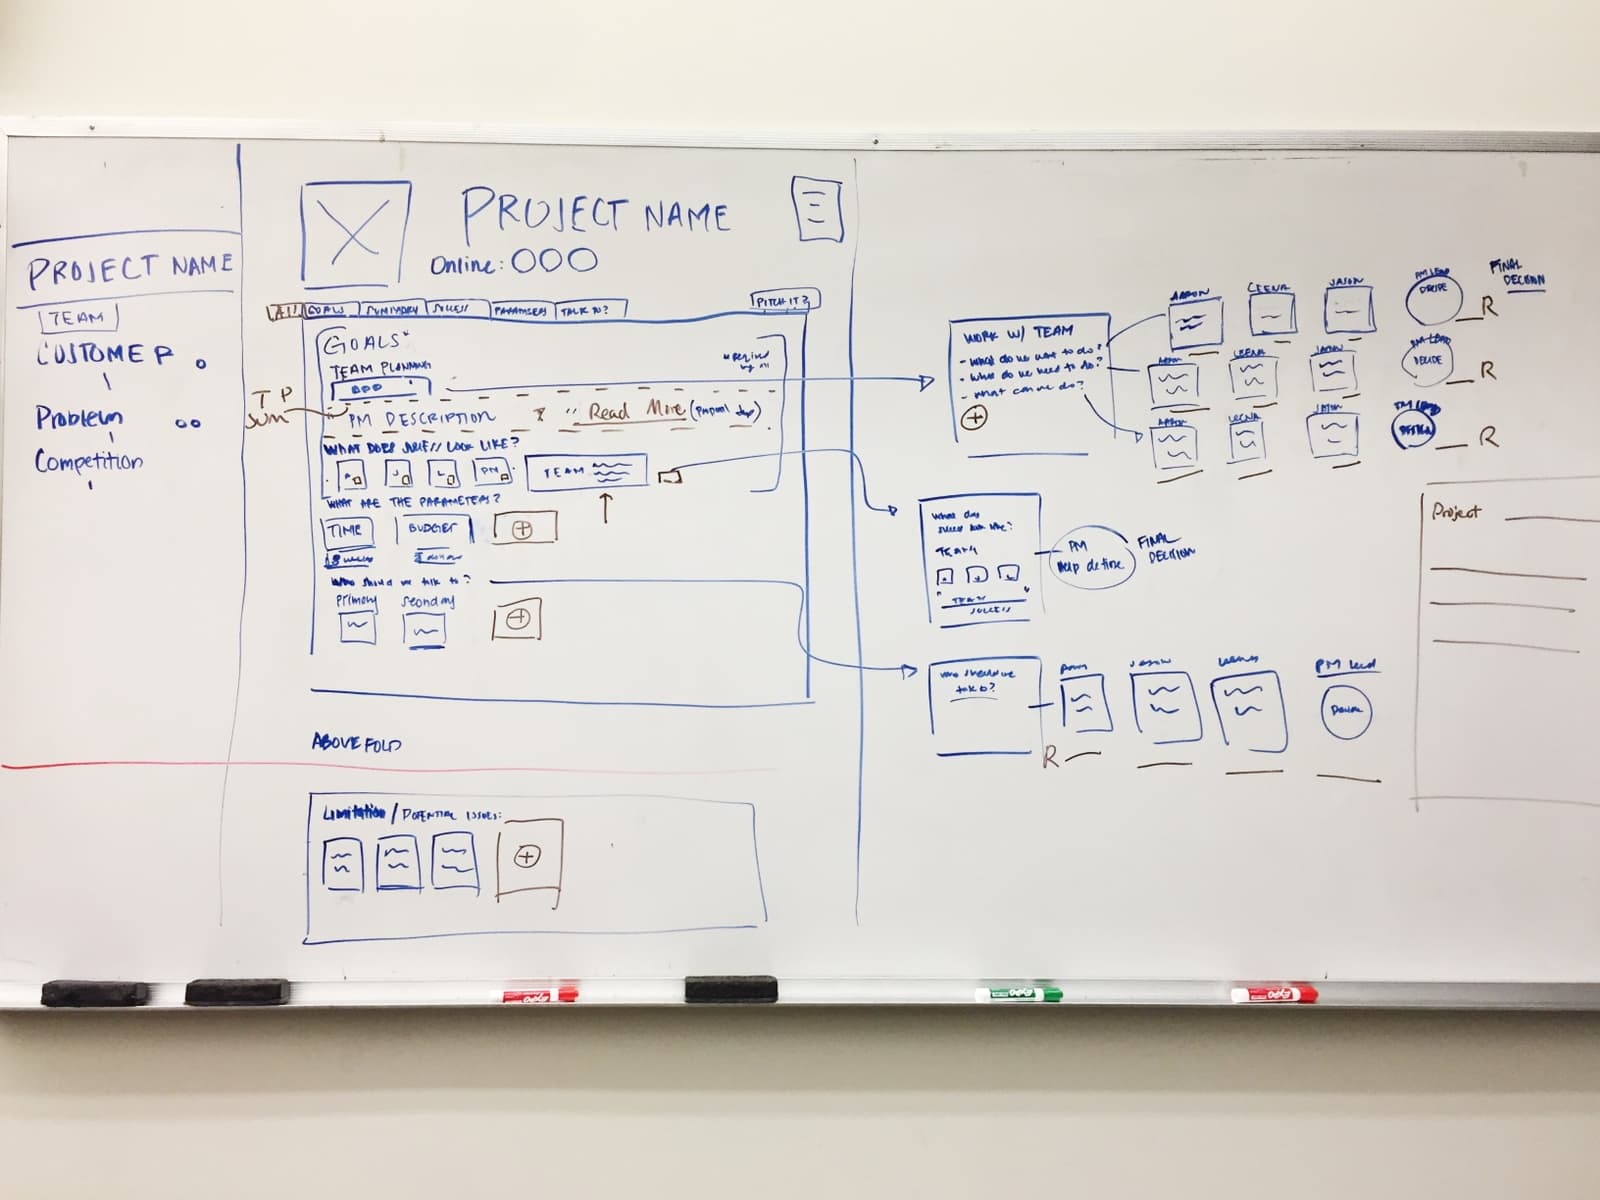 PROJECT NAME
TEAM
CUSTOMER
Problem
Competition
PROJECT NAME
Online:
All GOALS SUMMARY SUCCESS TALK TO? PITCH IT?
GOALS*
TEAM PLANNING
ADD
T P
SUM
PM DESCRIPTION * " Read More
WHAT DOES LOOK LIKE?
J L PM TEAM
WHAT ARE THE PARAMETERS?
TIME BUDGET
Who should we talk to?
Primary Secondary
ABOVE FOLD
Limitation / POTENTIAL ISSUES:
WORK W/ TEAM
- What do we want to do?
- What do we need to do?
- What can we do?
AARON LEENA JASON PM LEAD FINAL
DECIDE DECISION
R
LEENA JASON PM LEAD
DECIDE
R
LEENA JASON
R
What does
success look like?
TEAM
TEAM
SUCCESS
PM
Help define
FINAL
DECISION
Who should we
talk to?
JASON PM Lead
R
Project